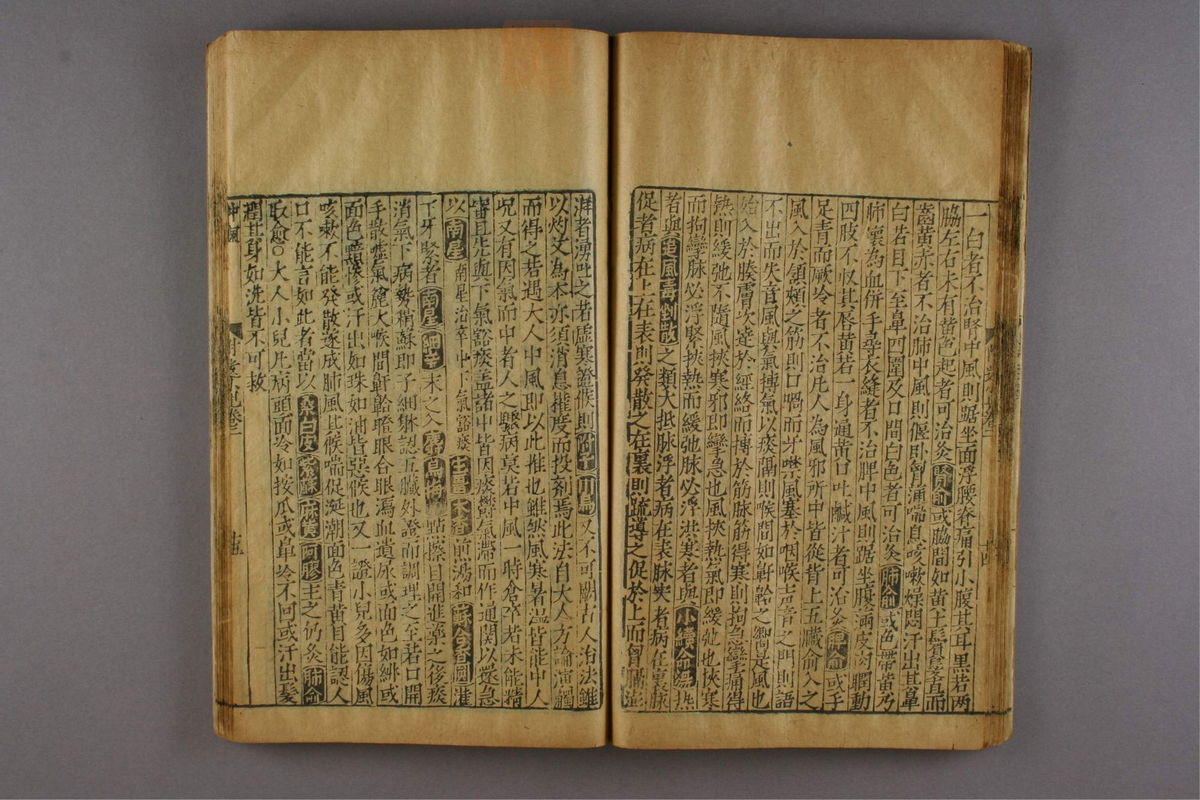 一白者不治腎中風則踞坐面浮腰脊痛引小腹其耳黑若兩
脇左右未有黄色起者可治灸腎俞或脇間如黄土鬢髮直而
齒黄赤者不治肺中風則偃臥胷滿喘息咳嗽燥悶汗出其鼻
白若目下至鼻四圍及口間白色者可治灸肺俞或色帶黄乃
肺裏為血併手尋衣縫者不治脾中風則踞坐腹滿皮肉瞤動
四肢不収其唇黄若一身通黄口吐鹹汁者可治灸脾俞或手
足青而厥冷者不治凡人為風邪所中皆從背上五臟俞入之
風入於頷頰之筋則口喎而牙噤風塞於咽喉声音之門則語
不出而失音風與氣搏氣以痰隔則喉間如鼾齁之響是風也
始入於腠膚次達於經絡而搏於筋脉筋得寒則拘急攣痛得
熱則緩弛不隨風挾寒邪即攣急也風挾熱氣即緩弛也挾寒
而拘攣脉必浮緊挾熱而緩弛脉必浮洪寒者與小續命湯熱
者與 風 散之類大抵脉浮者病在表脉实者病在裏脉
促者病在上在表則発散之在裏則疏導之促於上而胷膈澎
湃者湧吐之若虛寒證候則附子川烏又不可闕古人治法雖
以灼艾為本亦須消息搉度而投剤焉此法自大人方論演繹
而得之若遇大人中風即以此推也雖然風寒暑温皆能中人
况又有因氣而中者人之受病莫若中風一時倉卒者未能精
審且先與下氣豁痰盖諸中皆因痰欝氣滯而作通関以還急
以南星 南星治卒中下氣豁痰 生薑木香煎湯和蘇合香圓灌
下牙緊者南星細辛末之入 烏 點擦目開進薬之後痰
消氣下病勢稍蘇即子細辨認五臟外證而調理之至若口開
手散虛氣絶大喉間鼾齁瞻眼合眼瀉血遺尿或面色如緋或
面色黯慘或汗出如珠如油皆惡候也又一證小兒多因傷風
咳嗽不能発散遂成肺風其候喘促涎潮面色青黄目能認人
口不能言如此者當以桑白皮紫蘇麻黄阿膠主之仍灸肺俞
取愈○大人小兒凡病頭面冷如按瓜或鼻冷不回或汗出髮
潤其身如洗皆不可救
中風